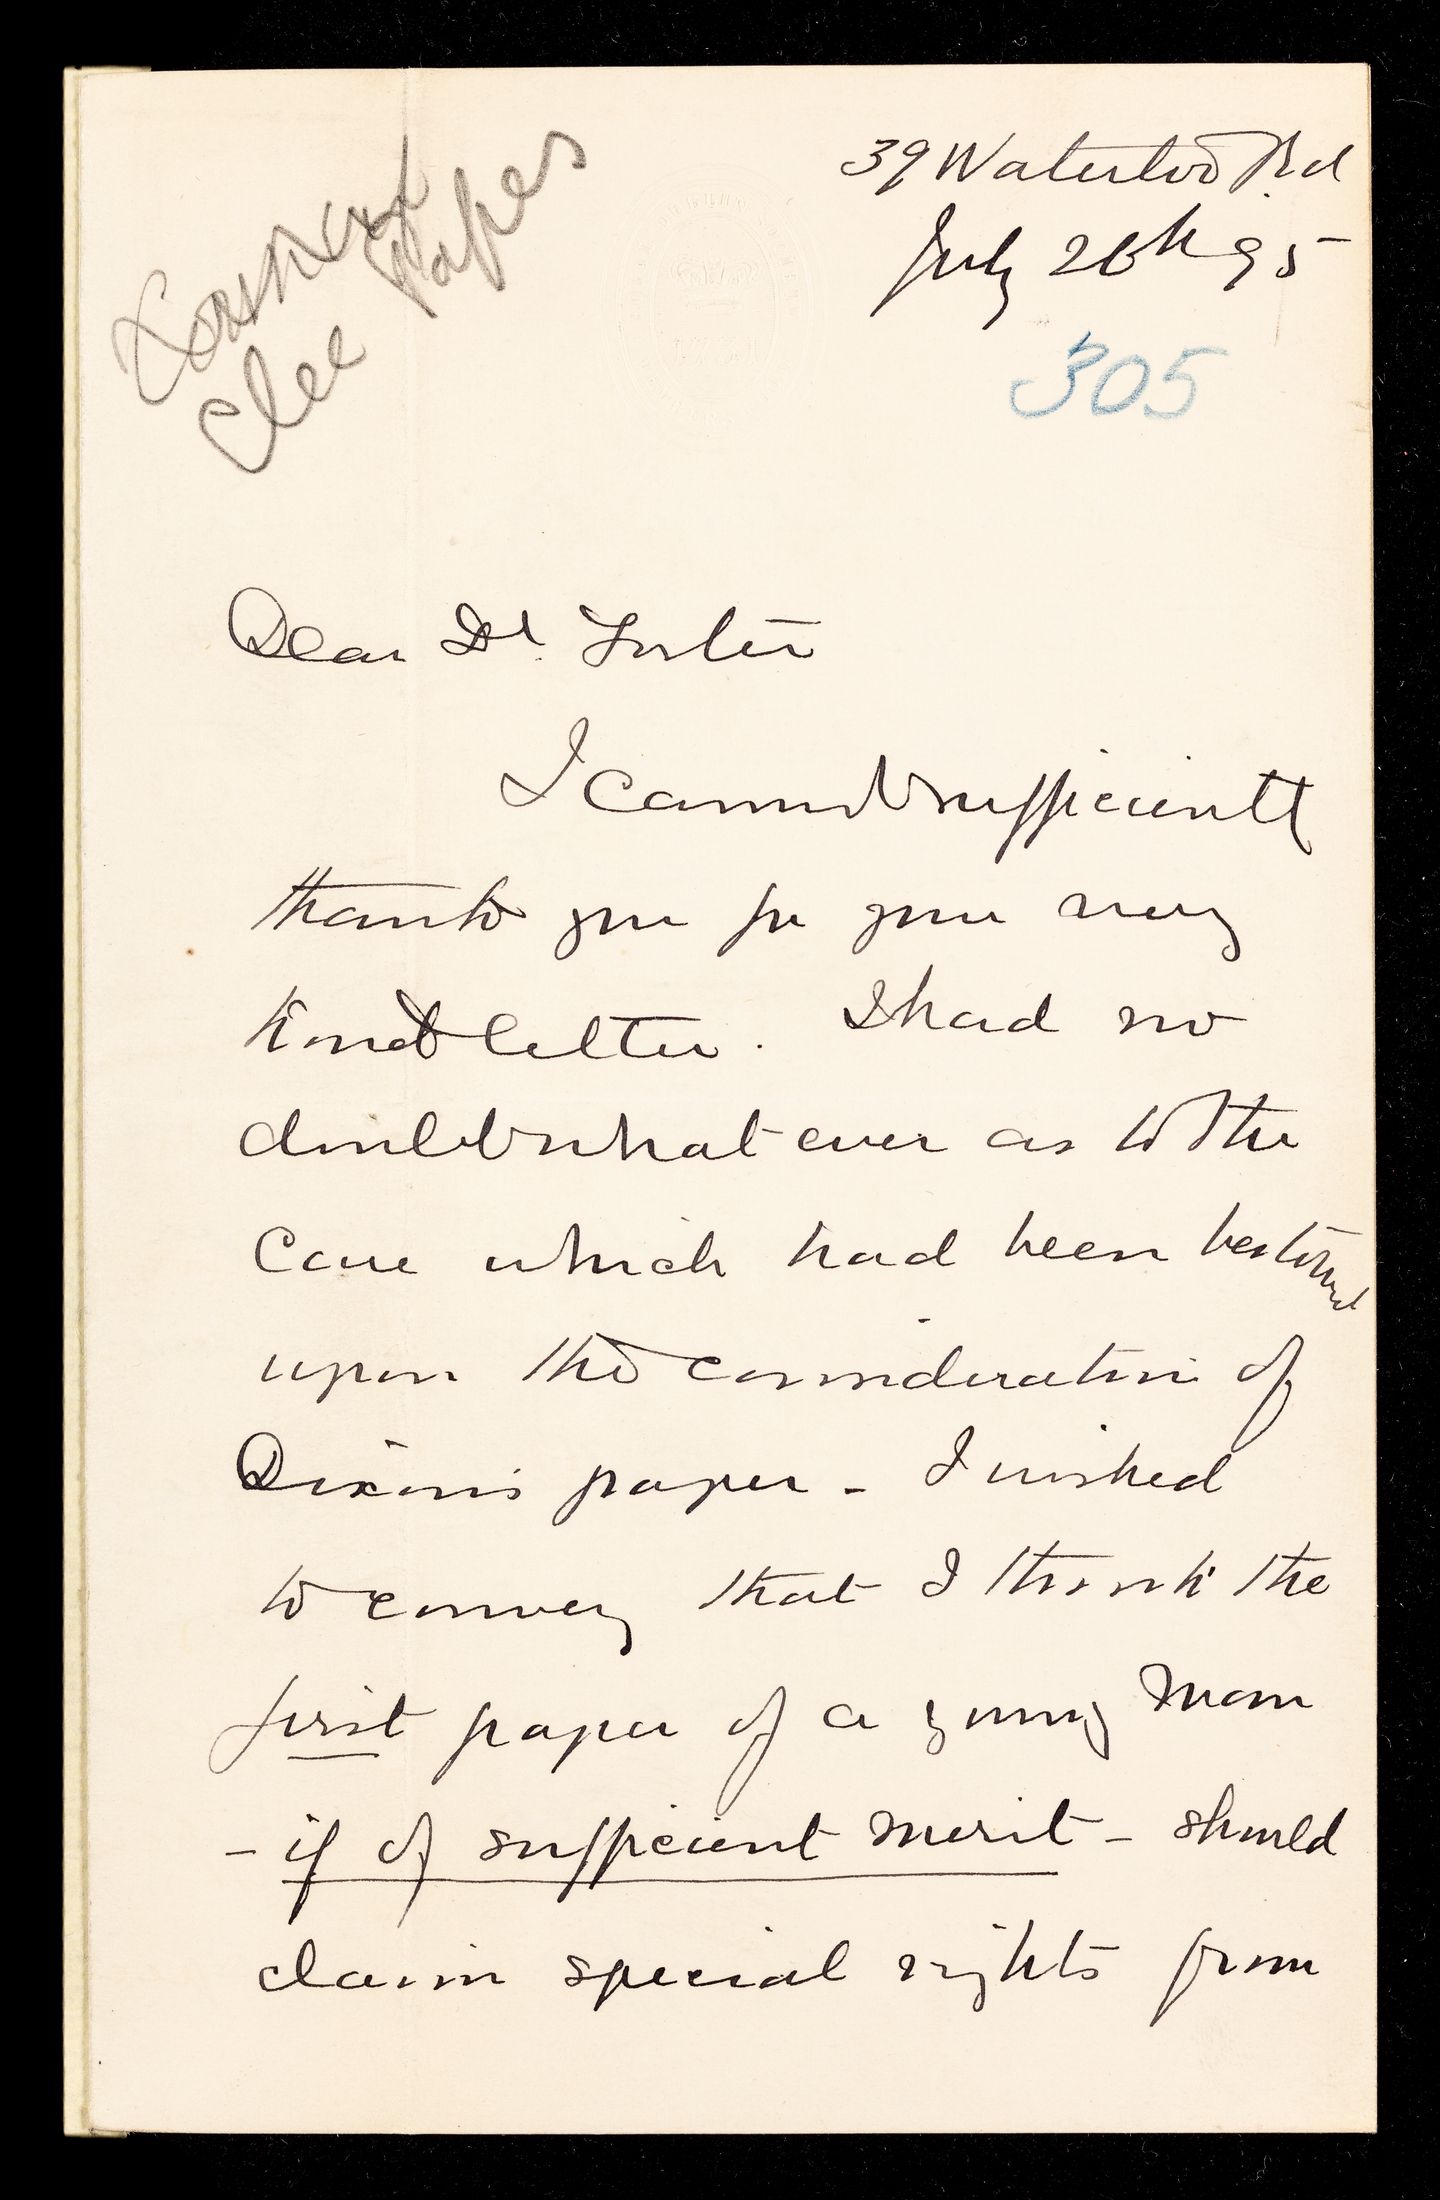 Papers
Clee
39 Waterloo Rd
July 26th 95
305
Dear Dr. Foster
I cannot sufficiently
thank you for your very
kind letter. I had no
doubt whatever as to the
care which had been bestowed
upon the consideration of
Dixon's paper - I wished
to convey that I think the
first paper of a young man
- if of sufficient merit - should
claim special rights from